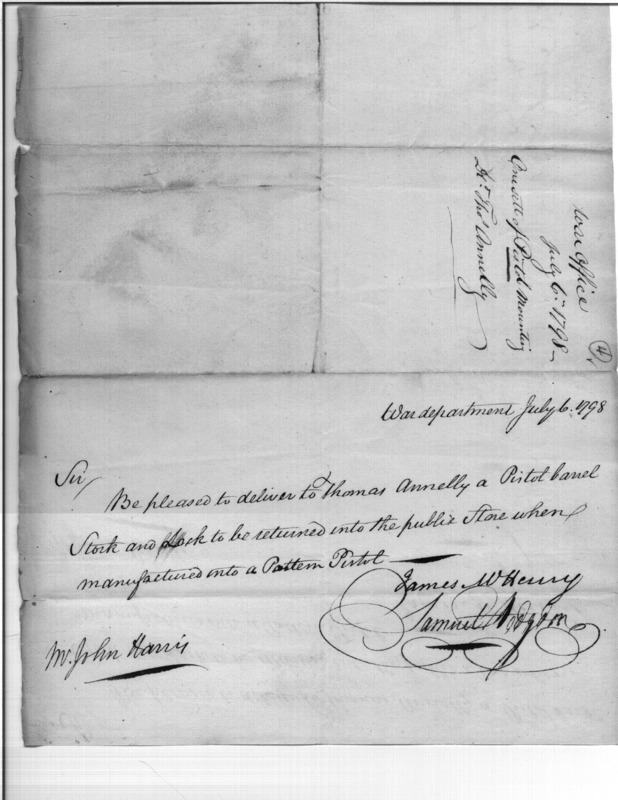 War Office
July 6. 1798
One sett of Pistol Mounting
Thos Annelly
4
War department July 6. 1798
Sir
Be pleased to deliver to Thomas Annelly a Pistol barrel
Stock and Lock to be returned into the public Store when
manufactured into a Pattern Pistol
James McHenry
Samuel Hodgdon
Mr. John Harris